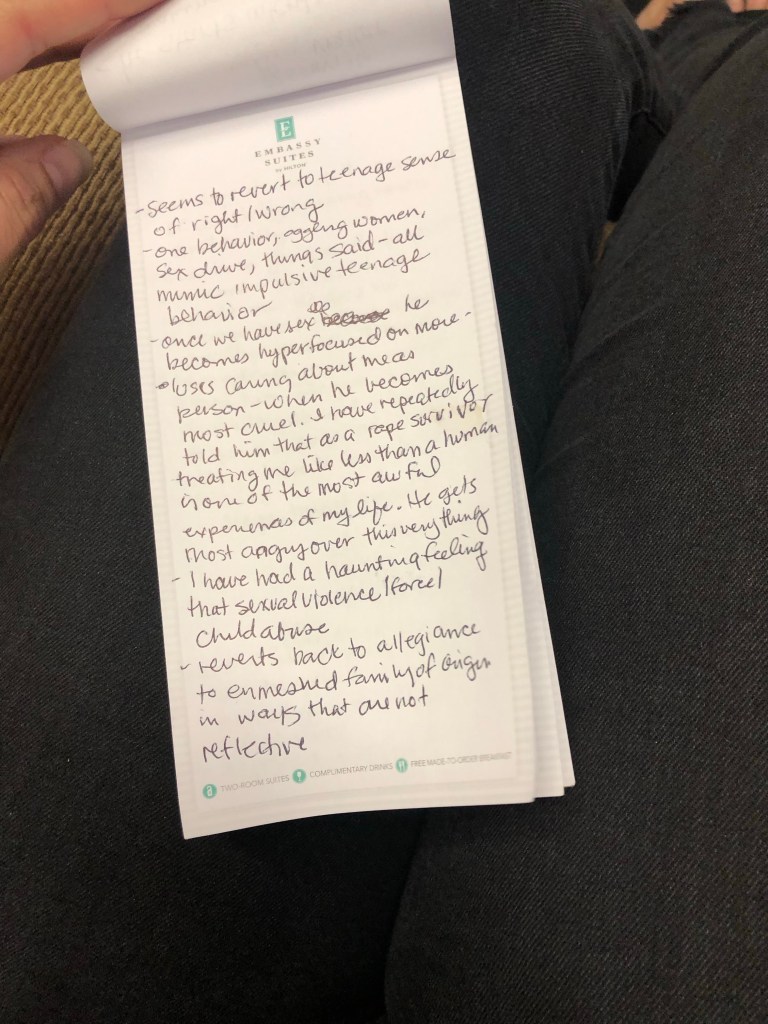 E
EMBASSY
SUITES
by HILTON
- seems to revert to teenage sense
of right/wrong
- one behavior, oggling women,
sex drive, things said - all
mimic impulsive teenage
behavior
- once we have sex he
becomes hyperfocused on more -
loses caring about me as
person - when he becomes
most cruel. I have repeatedly
told him that as a rape survivor
treating me like less than a human
is one of the most awful
experiences of my life. He gets
most angry over this very thing
- I have had a haunting feeling
that sexual violence/force/
child abuse
- reverts back to allegiance
to enmeshed family of origin
in ways that are not
reflective
TWO-ROOM SUITES COMPLIMENTARY DRINKS FREE MADE-TO-ORDER BREAKFAST